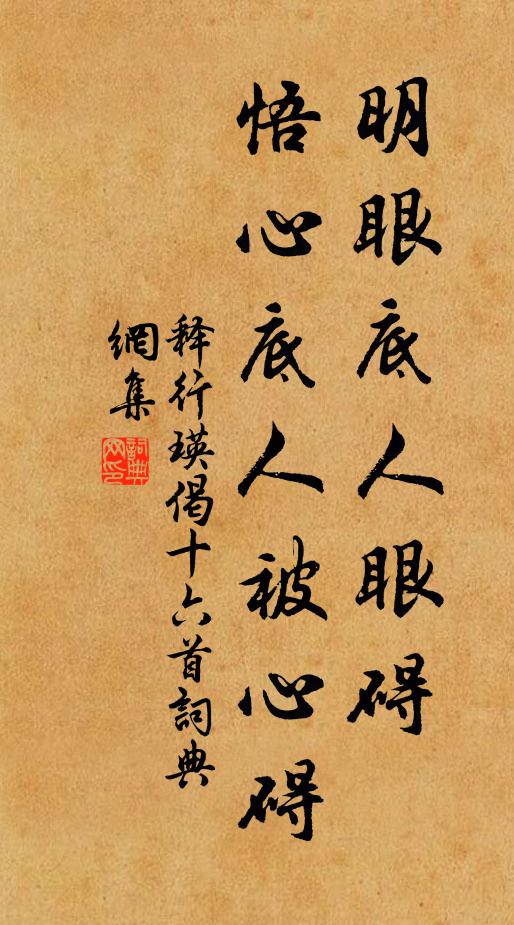 明眼底人眼碍
悟心底人被心碍
释行瑛偈十六首詞典
網集
詞典
网印